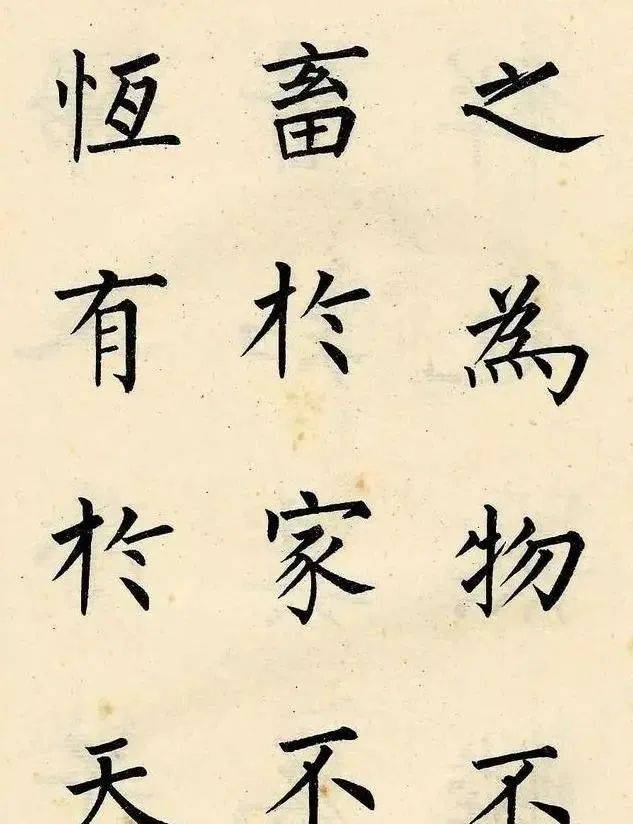 之為物不
畜於家不
恆有於天